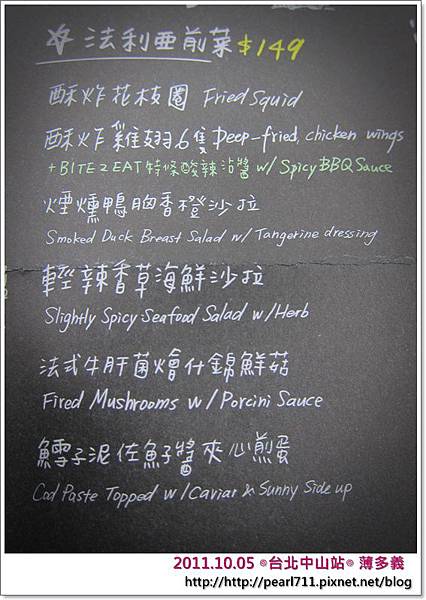 ☆法利亞前菜 $149
酥炸花枝圈 Fried Squid
酥炸雞翅6隻 Deep-fried, chicken wings
+BITE2EAT特條酸辣沾醬 w/ Spicy BBQ Sauce
煙燻鴨胸香橙沙拉
Smoked Duck Breast Salad w/ Tangerine dressing
輕辣香草海鮮沙拉
Slightly Spicy Seafood Salad w/Herb
法式牛肝菌燴什錦鮮菇
Fired Mushrooms w/Porcini Sauce
鱈子泥佐魚子醬夾心煎蛋
Cod Paste Topped w/Caviar & Sunny Side up
2011.10.05 ◎台北中山站◎ 薄多義
http://http://pearl711.pixnet.net/blog